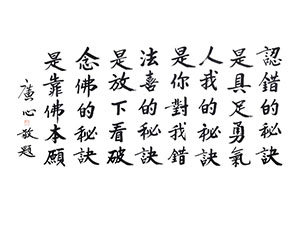 認錯的秘訣
是具足勇氣
人我的秘訣
是你對我錯
法喜的秘訣
是放下看破
念佛的秘訣
是靠佛本願
廣心敬題